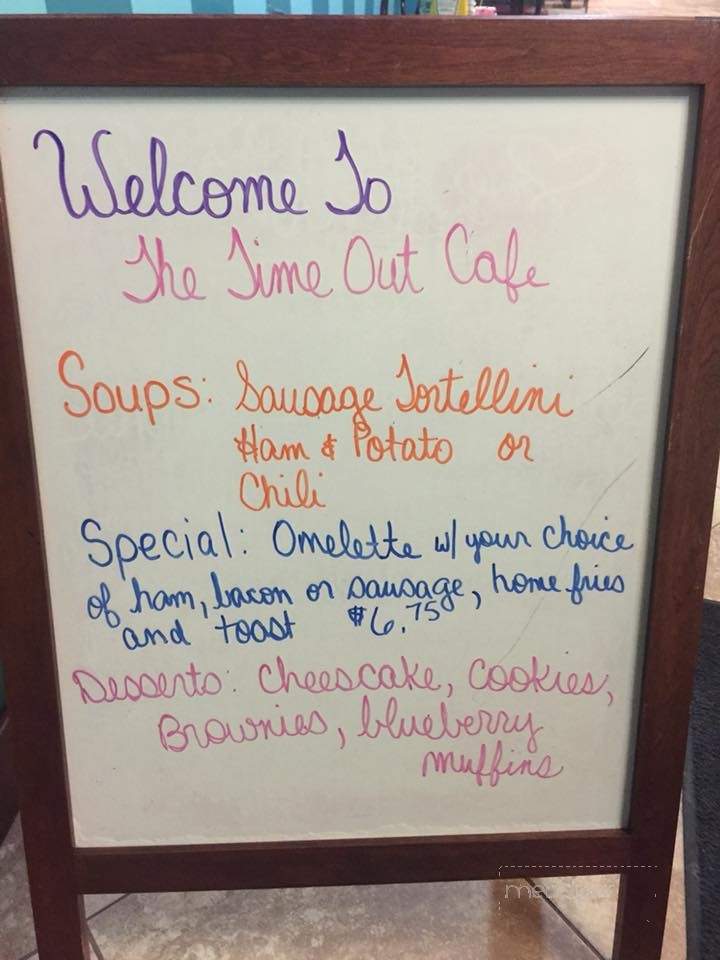 Welcome To
The Time Out Cafe
Soups: Sausage Tortellini
Ham & Potato or
Chili
Special: Omelette w/ your choice
of ham, bacon or sausage, home fries
and toast $6.75
Desserts: Cheescake, Cookies,
Brownies, blueberry
muffins